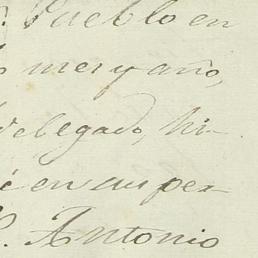 Pueblo en
mes y año,
delegado, hi-
é en su per-
Antonio